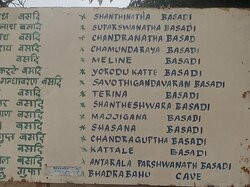 बसदि * SHANTHINATHA BASADI
बसदि * SUPARSWANATHA BASADI
बसदि * CHANDRANATHA BASADI
बसदि * CHAMUNDARAYA BASADI
बसदि * MELINE BASADI
बसदि * YORODU KATTE BASADI
बसदि * SAVOTHIGANDAVARAN BASADI
बसदि * TERINA BASADI
बसदि * SHANTHESHWARA BASADI
बसदि * MAJJIGANA BASADI
बसदि * SHASANA BASADI
गुप्त बसदि * CHANDRAGUPTHA BASADI
बसदि * KATTALE BASADI
बसदि * ANTARALA PARSHWANATH BASADI
गुफा * BHADRABAHU CAVE